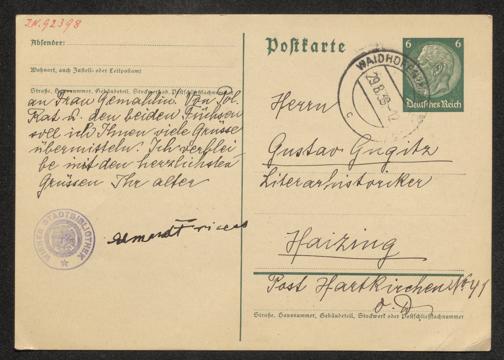 I.N. 92398
Absender:
Wohnort, auch Zustell- oder Leitpostamt
Straße, Hausnummer, Gebäudeteil, Stockwerk od. Postschließfachnummer
an Frau Gemahlin. Von Pol.
Rat u. den beiden Füchsen
soll ich Ihnen viele Grüsse
übermitteln. Ich verblei
be mit den herzlichsten
Grüssen Ihr alter
WIENER STADTBIBLIOTHEK
Postkarte
6 6
Deutsches Reich
29.8.39-12
c
Herrn
Gustav Gugitz
Literarhistoriker
Haizing
Post Hartkirchen No 41
O. D.
Straße, Hausnummer, Gebäudeteil, Stockwerk oder Postschließfachnummer